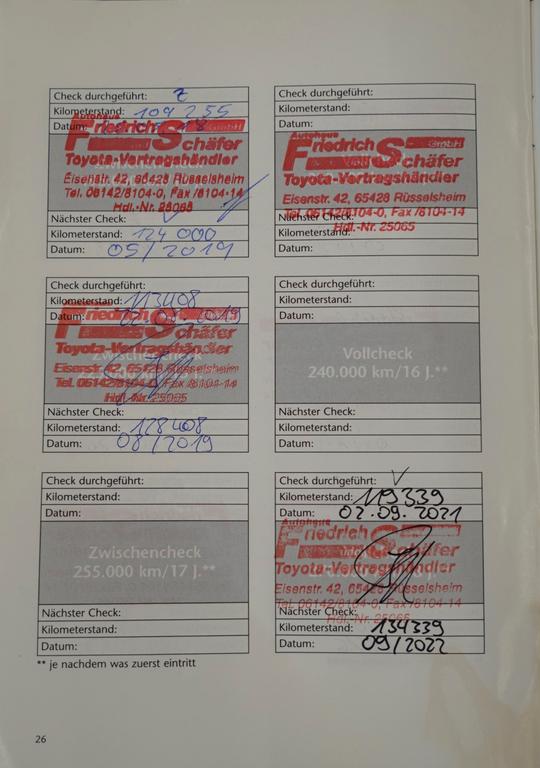 Check durchgeführt: Z
Kilometerstand: 109 255
Datum:
Autohaus
Friedrich Schäfer GmbH
Toyota-Vertragshändler
Eisenstr. 42, 65428 Rüsselsheim
Tel. 06142/8104-0, Fax /8104-14
Hdl.-Nr. 25065
Nächster Check:
Kilometerstand: 124 000
Datum: 05/2019
Check durchgeführt:
Kilometerstand:
Datum:
Autohaus
Friedrich Schäfer GmbH
Toyota-Vertragshändler
Eisenstr. 42, 65428 Rüsselsheim
Tel. 06142/8104-0, Fax /8104-14
Hdl.-Nr. 25065
Nächster Check:
Kilometerstand:
Datum:
Check durchgeführt:
Kilometerstand: 113408
Datum:
Friedrich Schäfer
Toyota-Vertragshändler
Zwischencheck
Eisenstr. 42, 65428 Rüsselsheim
Tel. 06142/8104-0, Fax /8104-14
Hdl.-Nr. 25065
Nächster Check:
Kilometerstand: 128408
Datum: 08/2019
Check durchgeführt:
Kilometerstand:
Datum:
Vollcheck
240.000 km/16 J.**
Nächster Check:
Kilometerstand:
Datum:
Check durchgeführt:
Kilometerstand:
Datum:
Zwischencheck
255.000 km/17 J.**
Nächster Check:
Kilometerstand:
Datum:
Check durchgeführt: V
Kilometerstand: 119339
Datum: 02.09.2021
Autohaus
Friedrich Schäfer
Toyota-Vertragshändler
Eisenstr. 42, 65428 Rüsselsheim
Tel. 06142/8104-0, Fax /8104-14
Hdl.-Nr. 25065
Nächster Check:
Kilometerstand: 134339
Datum: 09/2022
** je nachdem was zuerst eintritt
26